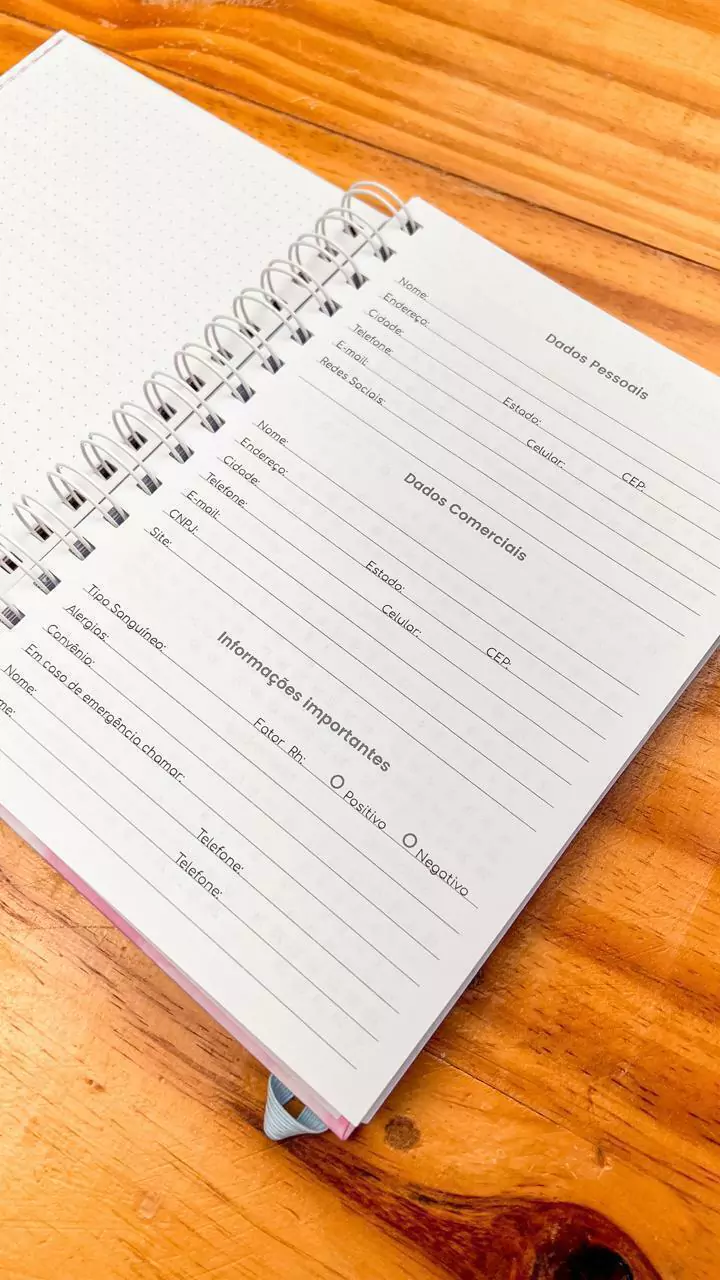 Dados Pessoais
Nome:
Endereço:
Cidade: Estado: CEP:
Telefone: Celular:
E-mail:
Redes Sociais:
Dados Comerciais
Nome:
Endereço:
Cidade: Estado: CEP:
Telefone: Celular:
E-mail:
CNPJ:
Site:
Informações importantes
Tipo Sanguíneo: Fator Rh: Positivo Negativo
Alergias:
Convênio:
Em caso de emergência chamar:
Nome: Telefone:
me: Telefone: